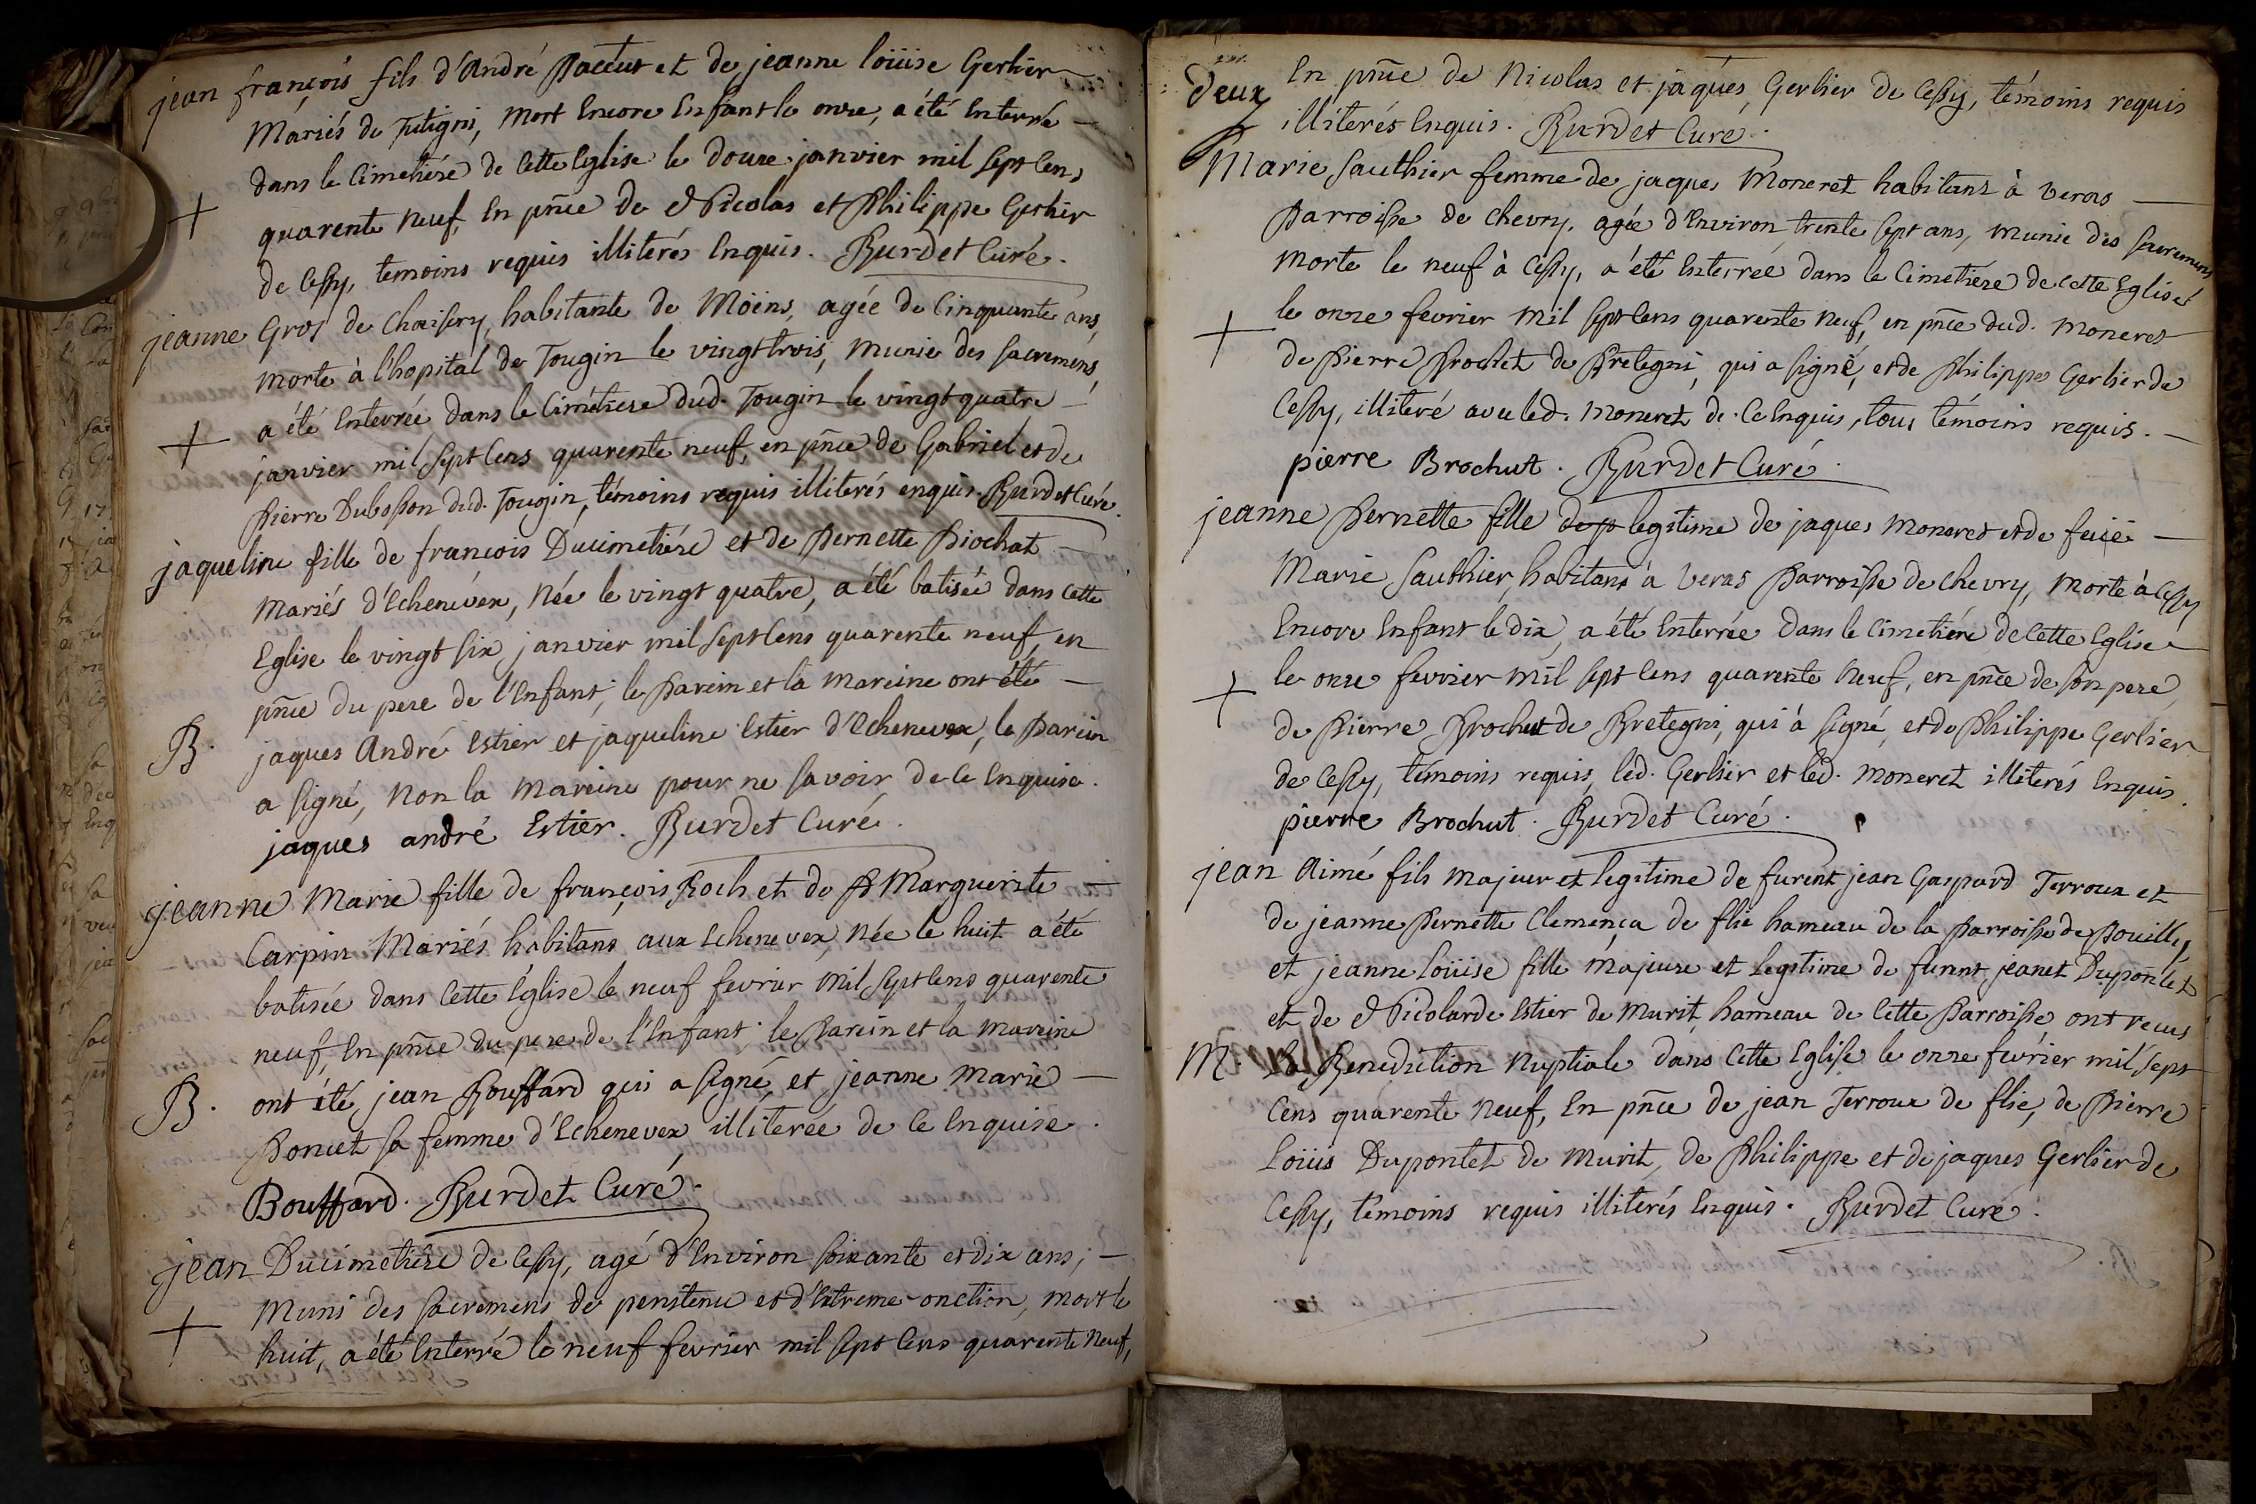 jean françois fils d'André Paccut et de jeanne loüise Gerlier
Mariés de Tutigni, mort Encore Enfant le onze, a été Enterré
dans le Cimetiére de Cette Eglise le douze janvier mil sept Cens
+ quarente neuf, En pñce de Nicolas et Philippe Gerlier
de Cessy, temoins requis illiterés Enquis. Burdet Curé.
jeanne Gros de Chaisery, habitante de Möens, agée de Cinquante ans,
morte à l'hopital de Tougin le vingt trois, munie des sacremens,
+ a été Enterrée dans le Cimétiere dud. Tougin le vingt quatre
janvier mil sept Cens quarente neuf, en pñce de Gabriel et de
Pierre Dubosson dud. Tougin, témoins requis illiterés enquis. Burdet Curé.
jaqueline fille de francois Ducimetiére et de Pernette Piochat
Mariés d'Echenévex, Née le vingt quatre, a été batisée dans Cette
Eglise le vingt six janvier mil sept Cens quarente neuf, en
pñce du pere de l'Enfant; le Parein et la mareine ont été
B. jaques André Estier et jaqueline Estier d'Echenevex, le Parein
a signé, Non la mareine pour ne savoir de Ce Enquise.
jaques andré Estier. Burdet Curé.
jeanne Marie fille de françois Roch et de Marguerite
Carpin Mariés habitans aux Echenevex, Née le huit a été
batisée dans Cette Eglise le neuf fevrier mil sept Cens quarente
neuf, En pñce du pere de l'Enfant; le Parein et la mareine
B. ont été jean Bouffard qui a signé, et jeanne Marie
Poncet sa femme d'Echenevex illiterée de Ce Enquise.
Bouffard. Burdet Curé.
jean Ducimetiére de Cessy, agé d'Environ soixante et dix ans,
+ Muni des sacremens de penitence et d'Extreme-onction, mort le
huit, a été Enterré le neuf fevrier mil sept Cens quarente neuf,
deux En pñce de Nicolas et jaques Gerlier de Cessy, témoins requis
illiterés Enquis. Burdet Curé.
Marie Sauthier femme de jaques Moneret habitans à Veras
Parroisse de Chevry, agée d'Environ trente sept ans, munie des sacremens
Morte le neuf à Cessy, a été Enterrée dans le Cimetiére de cette Eglise
+ le onze fevrier mil sept Cens quarente neuf, en pñce dud. Moneret
de Pierre Brochet de Bretegni, qui a signé, et de Philippe Gerlier de
Cessy, illiteré avec led. Moneret de Ce Enquis, tous témoins requis.
pierre Brochut. Burdet Curé.
jeanne Pernette fille legitime de jaques Moneret et de feüe
Marie Sauthier, habitans à Veras Parroisse de Chevry, Morte à Cessy
Encore Enfant le dix, a été Enterrée dans le Cimetiére de Cette Eglise
+ le onze fevrier mil sept Cens quarente Neuf, en pñce de son pere,
de Pierre Brochut de Bretegni, qui à signé, et de Philippe Gerlier
de Cessy, témoins requis, led. Gerlier et led. Moneret illiterés Enquis.
pierre Brochut. Burdet Curé.
jean Aimé fils majeur et legitime de furent jean Gaspard Terroux et
de jeanne Pernette Clemença de flie hameau de la Parroisse de Pouilly,
et jeanne Loüise fille majeure et Legitime de furent jeanet Dupontet
et de Nicolarde Estier de Murit, hameau de Cette Parroisse ont reçus
M. la Benediction Nuptiale dans Cette Eglise le onze fevrier mil sept
Cens quarente Neuf, En pñce de jean Terroux de flie, de Pierre
Loüis Dupontet de Murit, de Philippe et de jaques Gerlier de
Cessy, témoins requis illiterés Enquis. Burdet Curé.